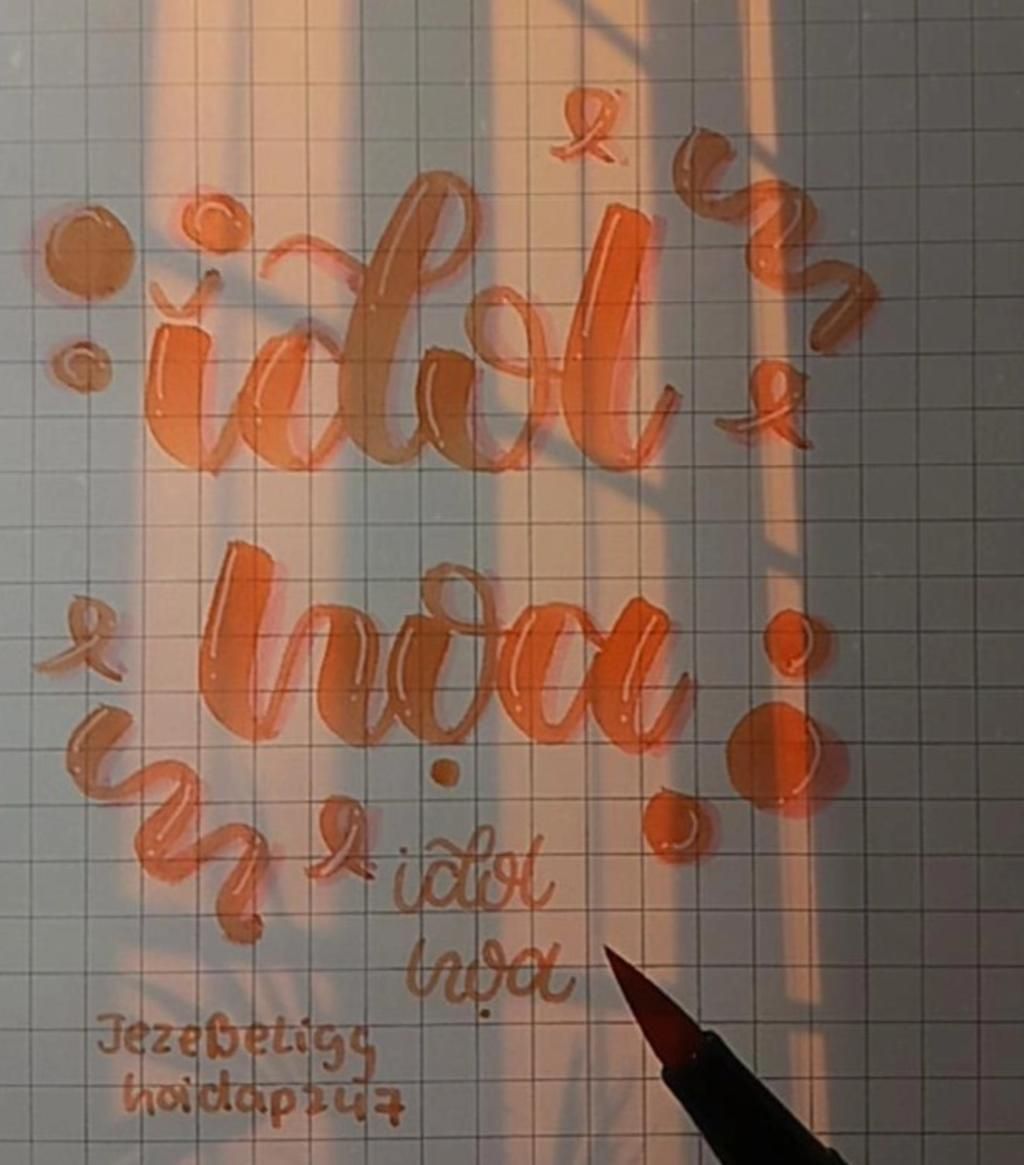 idol
họa
idol
họa
JezeBeLigg
hoidap247